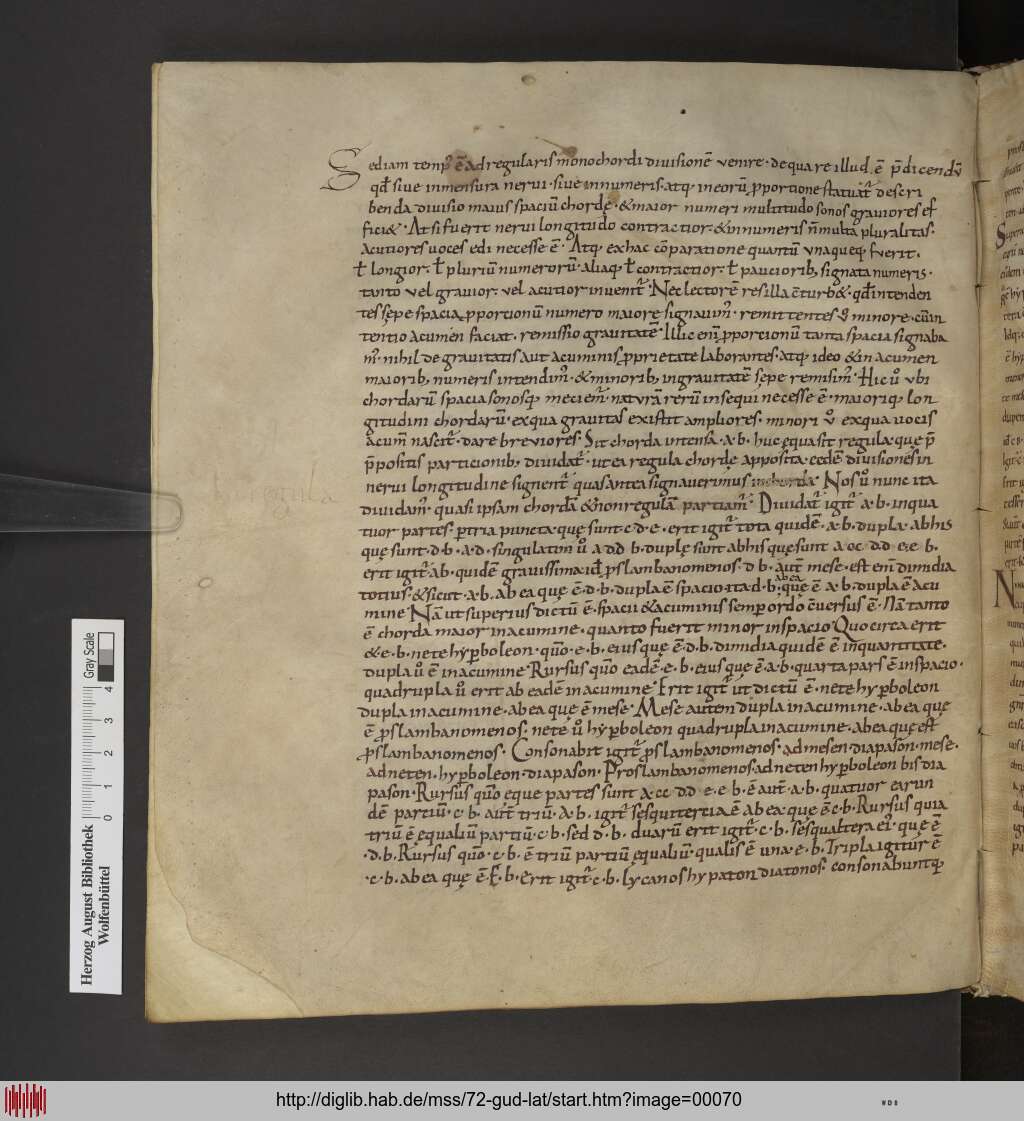 Sed iam temp' ē ad regularis monochordi divisionē venire. de qua re illud. ē p̄dicendū
qđ sive in mensura nervi. sive in numeris. atq; in eorū ꝓportione statuat̃ descri
benda divisio maius spaciū chordę. & maior numeri multitudo sonos graviores ef
fici&. At si fuerit nervi longitudo contractior. & in numeris ñ multa pluralitas.
acutiores voces edi necesse ē. Atq; ex hac cōparatione quantū unaqueq; fuerit.
ł longior. ł pluriū numerorū. aliaq; ł contractior. ł paucioribꝫ signata numeris.
tanto vel gravior. vel acutior invenit̃. Nec lectorē res illa cturb&. qđ intenden
tes sępe spacia ꝓportionū numero maiore signavim'. remittentes ů minore. cū in
tentio acumen faciat. remissio gravitatē. Illic enī ꝓportionū tanta spacia signaba
m'. nihil de gravitatis aut acuminis ꝓprietate laborantes. atq; ideo & in acumen
maioribꝫ numeris intendim'. & minoribꝫ in gravitatē sępe remisim'. Hic ů ubi
chordarū spacia sonosq; meciem̃. naturā rerū insequi necesse ē. maioriq; lon
gitudini chordarū. ex qua gravitas existit ampliores. minori ů ex qua vocis
acum̄ nascit̃. dare breviores. Sit chorda intensa. a. b. huic ęqua sit regula. quę p̄
p̄positis particionibꝫ dividat̃. ut ea regula chordę apposita. eędē divisiones in
nervi longitudine signent̃. quas antea signaverimus in chorda. Nos ů nunc ita
dividam'. quasi ipsam chordā & non regulam partiam̃. Dividat̃ igit̃ a. b. in qua
tuor partes. ꝑ tria puncta. quę sunt. c. d. e. erit igit̃ tota quidē. a. b. dupla. ab his
quę sunt. d. b. a. d. singulatim ů a d d b. duplę sunt ab his quę sunt a c. c d. d e. e b.
erit igit̃. a b. quidē gravissima. id ꝓslambanomenos. d b. aut̃ mese. est enī dimidia
totius. & sicut. a. b. ab ea quę ē. d. b. dupla ē spacio. ita. d. b. ab ea quę ē a. b. dupla ē acu
mine. Nā ut superius dictū ē. spacii & acuminis semꝑ ordo cversus ē. Nā tanto
ē chorda maior in acumine. quanto fuerit minor in spacio. Quo circa erit
& e. b. nete hyꝑboleon. quō. e. b. eius quę ē. d. b. dimidia quidē ē in quantitate.
dupla ů ē in acumine. Rursus quō eadē. e. b. eius quę ē. a b. quarta pars ē in spacio.
quadrupla ů erit ab eadē in acumine. Erit igit̃ ut dictū ē. nete hyꝑboleon
dupla in acumine. ab ea quę ē mese. Mese autem dupla in acumine. ab ea quę
ē ꝓslambanomenos. nete ů hyꝑboleon quadrupla in acumine. ab ea quę est
ꝓslambanomenos. Consonabit igit̃ ꝓslambanomenos. ad mesen. diapason. mese.
ad neten. hyꝑboleon. diapason. Proslambanomenos. ad neten hyꝑboleon bis dia
pason. Rursus quō ęque partes sunt a. c c. d d. e. e b. ē aut̃. a. b. quatuor earun
dē partiū. c. b. aut̃ triū. A. b. igit̃ sesquitertia ē ab ea quę ē. c. b. Rursus quia
triū ē ęqualiū partiū. c b. sed d. b. duarū erit igit̃. c. b. sesqualtera ei'. quę ē
.d. b. Rursus quō. c. b. ē triū partiū ęqualiū. qualis ē una. e. b. Tripla igitur ē
.c. b. ab ea quę ē. E. b. Erit igit̃ c. b. lycanos hypaton diatonos. consonabuntq;
Herzog August Bibliothek
Wolfenbüttel
Gray Scale
0 1 2 3 4
http://diglib.hab.de/mss/72-gud-lat/start.htm?image=00070